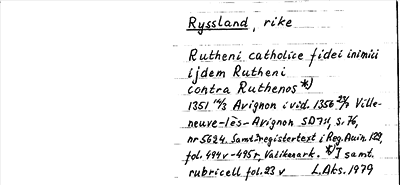 Ryssland, rike
Rutheni catholice fidei inimici
ijdem Rutheni
contra Ruthenos *)
1351 14/3 Avignon i vid. 1356 23/7 Ville-
neuve-lès-Avignon SD 7:1, s. 76,
nr 5624. Samt: registertext i Reg. Avin. 129,
fol. 494v-495r, Vatikanark. *) I samt.
rubricell fol. 23 v L. Aks. 1979